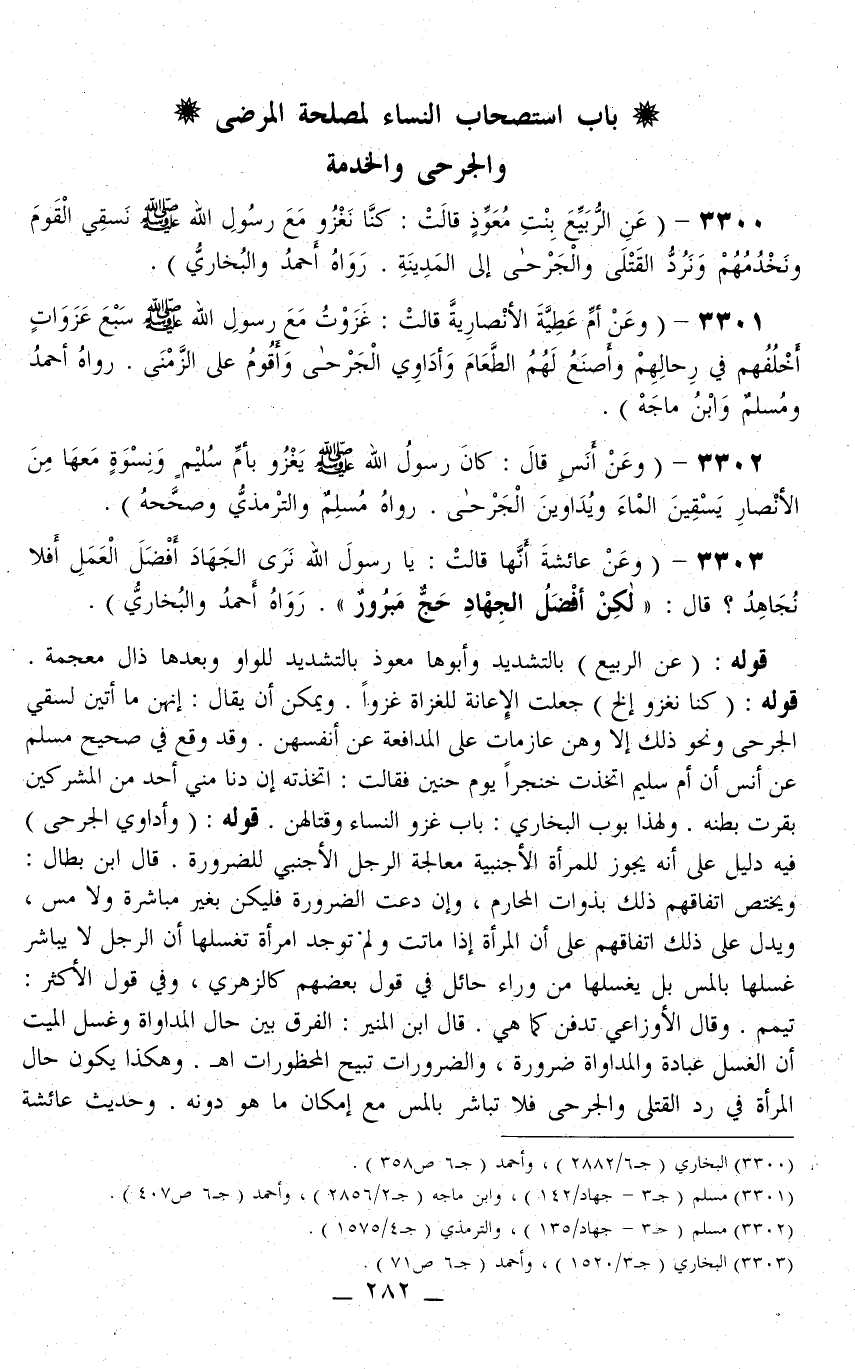 ✷ باب استصحاب النساء لمصلحة المرضى ✷
والجرحى والخدمة
٣٣٠٠ – ( عَنِ الرُّبَيِّعَ بِنْتِ مُعَوِّذٍ قالَتْ : كنَّا نَغْزُو مَعَ رسُولِ الله ﷺ نَسقِي الْقَومَ
ونَخْدُمُهُمْ وَنَرُدُّ القَتْلَى والْجَرْحىٰ إلى المَدِينَةِ . رَوَاهُ أحمدُ والبُخاريُّ ) .
٣٣٠١ – ( وعَنْ أمِّ عَطِيَّةَ الأنْصاريةَّ قالتْ : غَزَوْتُ مَعَ رسولِ الله ﷺ سَبْعَ غَزَوَاتٍ
أَخْلُفُهم في رِحالِهِمْ وأَصنَعُ لَهُمُ الطَّعَامَ وَأدَاوِي الْجَرْحىٰ وَأَقُومُ على الزَّمْنَى . رواهُ أحمدُ
ومُسلمٌ وَابْنُ ماجَهْ ) .
٣٣٠٢ – ( وعَنْ أَنَسٍ قالَ : كانَ رسولُ الله ﷺ يَغْزُو بأمِّ سُلَيْمٍ وَنِسْوَةٍ مَعهَا مِنَ
الأنْصارِ يَسْقِينَ المْاءَ ويُدَاوينَ الْجَرْحىٰ . رواهُ مُسلِمٌ والترْمذيُّ وصحَّحهُ ) .
٣٣٠٣ – ( وعَنْ عائشةَ أَنَّها قالتْ : يا رسولَ الله نَرَى الجَهَادَ أَفْضَلَ الْعَمَلِ أَفلا
نُجَاهِدُ ؟ قال : « لٰكِنْ أفْضَلُ الجِهْادِ حَجٌّ مَبرُورٌ » . رَوَاهُ أَحمدُ والبُخاريُّ ) .
قوله : ( عن الربيع ) بالتشديد وأبوها معوذ بالتشديد للواو وبعدها ذال معجمة .
قوله : ( كنا نغزو إلخ ) جعلت الإِعانة للغزاة غزواً . ويمكن أن يقال : إنهن ما أتين لسقي
الجرحى ونحو ذلك إلا وهن عازمات على المدافعة عن أنفسهن . وقد وقع في صحيح مسلم
عن أنس أن أم سليم اتخذت خنجراً يوم حنين فقالت : اتخذته إن دنا مني أحد من المشركين
بقرت بطنه . ولهذا بوب البخاري : باب غزو النساء وقتالهن . قوله : ( وأداوي الجرحى )
فيه دليل على أنه يجوز للمرأة الأجنبية معالجة الرجل الأجنبي للضرورة . قال ابن بطال :
ويختص اتفاقهم ذلك بذوات المحارم ، وإن دعت الضرورة فليكن بغير مباشرة ولا مس ،
ويدل على ذلك اتفاقهم على أن المرأة إذا ماتت ولم توجد امرأة تغسلها أن الرجل لا يباشر
غسلها بالمس بل يغسلها من وراء حائل في قول بعضهم كالزهري ، وفي قول الأكثر :
تيمم . وقال الأوزاعي تدفن كما هي . قال ابن المنير : الفرق بين حال المداواة وغسل الميت
أن الغسل عبادة والمداواة ضرورة ، والضرورات تبيح المحظورات اهـ . وهكذا يكون حال
المرأة في رد القتلى والجرحى فلا تباشر بالمس مع إمكان ما هو دونه . وحديث عائشة
(٣٣٠٠) البخاري ( جـ٢٨٨٢/٦ ) ، وأحمد ( جـ٦ ص٣٥٨ ) .
(٣٣٠١) مسلم ( جـ٣ – جهاد/١٤٢ ) ، وابن ماجه ( جـ٢٨٥٦/٢ ) ، وأحمد ( جـ٦ ص٤٠٧ ) .
(٣٣٠٢) مسلم ( حـ٣ – جهاد/١٣٥ ) ، والترمذي ( جـ١٥٧٥/٤ ) .
(٣٣٠٣) البخاري ( جـ١٥٢٠/٣ ) ، وأحمد ( جـ٦ ص٧١ ) .
— ٢٨٢ —